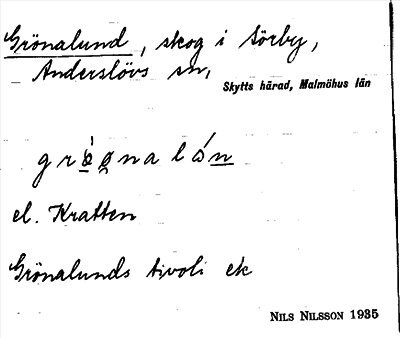 Grönalund, skog i Sörby,
Anderslövs sn,
Skytts härad, Malmöhus län
el. Kratten
Grönalunds tivoli etc
NILS NILSSON 1935